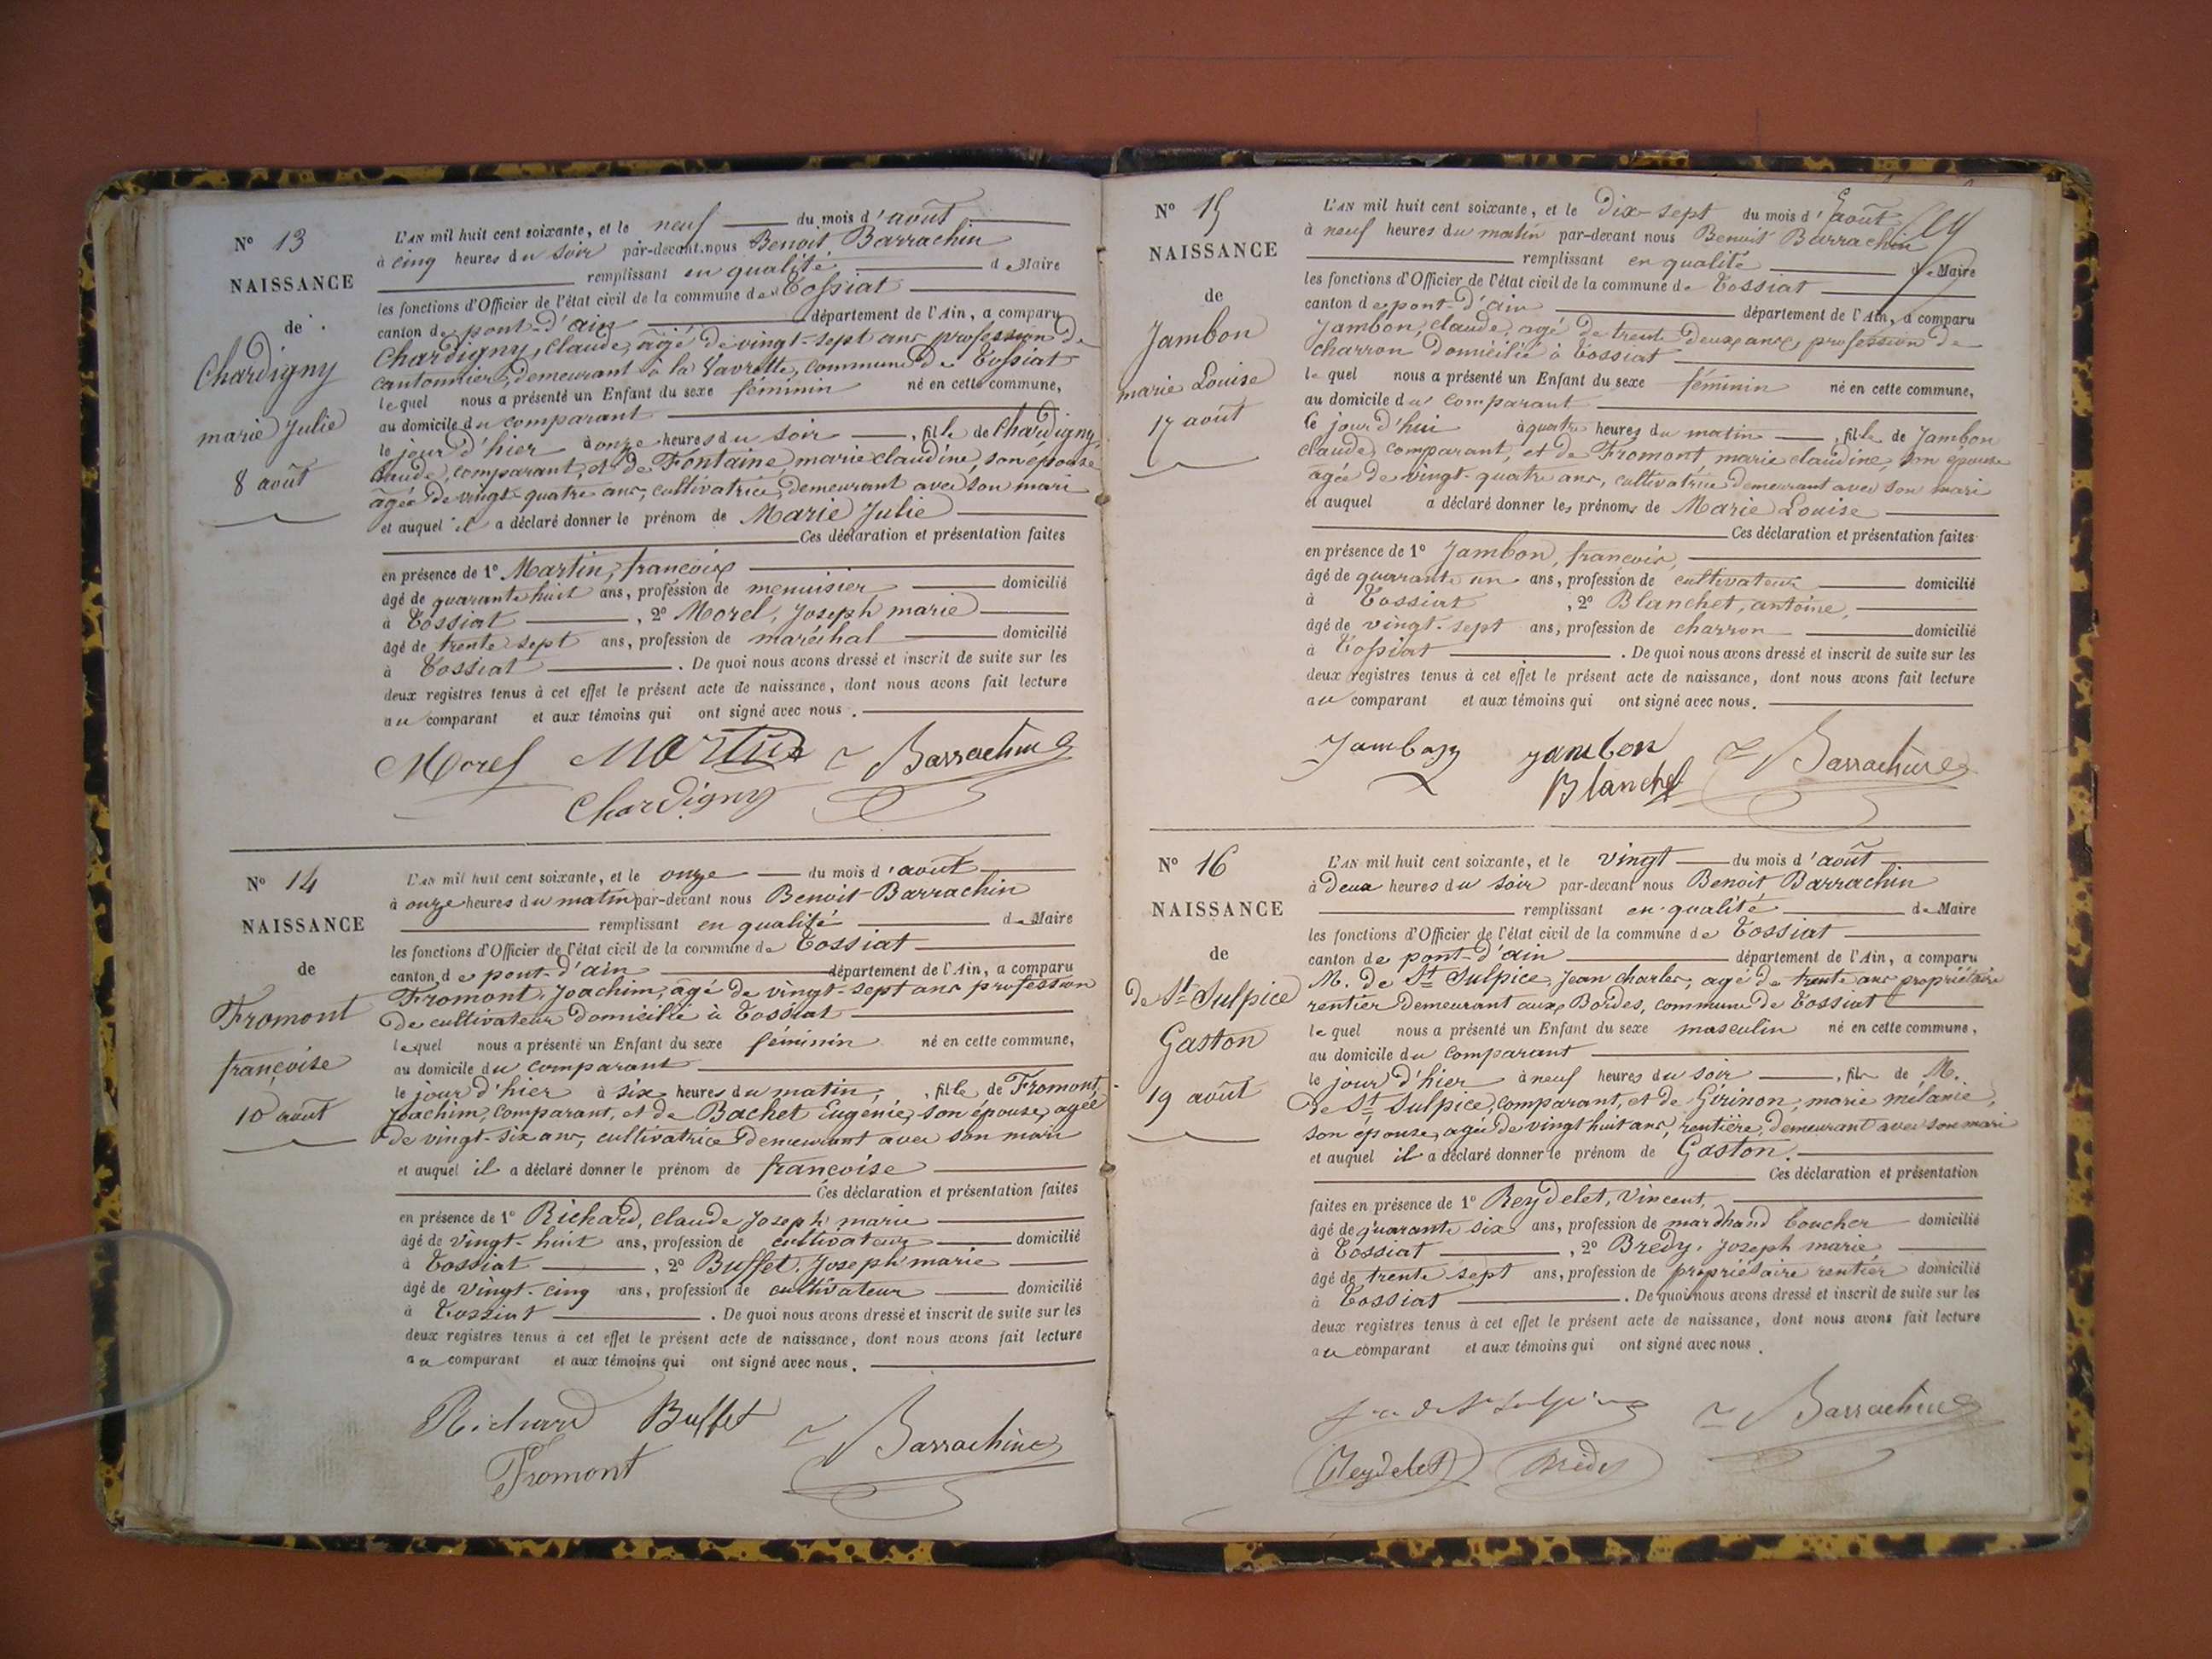 N° 13
NAISSANCE
de
Chardigny
marie Julie
8 août
L'AN mil huit cent soixante, et le neuf du mois d'août
à cinq heures du soir par-devant nous Benoit Barrachin
remplissant en qualité de Maire
les fonctions d'Officier de l'état civil de la commune de Tossiat
canton de pont-d'ain département de l'Ain, a comparu
Chardigny, Claude, agé de vingt-sept ans profession de
cantonnier, demeurant à la Vavrette, commune de Tossiat
lequel nous a présenté un Enfant du sexe féminin né en cette commune,
au domicile du comparant
le jour d'hier à onze heures du soir, fille de Chardigny,
claude, comparant, et de Fontaine, marie claudine, son épouse
agée de vingt-quatre ans, cultivatrice, demeurant avec son mari
et auquel il a déclaré donner le prénom de Marie Julie
Ces déclaration et présentation faites
en présence de 1° Martin, françois
âgé de quarante huit ans, profession de menuisier domicilié
à Tossiat, 2° Morel, Joseph marie
âgé de trente sept ans, profession de maréchal domicilié
à Tossiat. De quoi nous avons dressé et inscrit de suite sur les
deux registres tenus à cet effet le présent acte de naissance, dont nous avons fait lecture
au comparant et aux témoins qui ont signé avec nous.
Morel Martin Barrachin
Chardigny
N° 14
NAISSANCE
de
Fromont
françoise
10 août
L'AN mil huit cent soixante, et le onze du mois d'août
à onze heures du matin par-devant nous Benoit Barrachin
remplissant en qualité de Maire
les fonctions d'Officier de l'état civil de la commune de Tossiat
canton de pont-d'ain département de l'Ain, a comparu
Fromont, Joachim, agé de vingt-sept ans profession
de cultivateur domicilié à Tossiat
lequel nous a présenté un Enfant du sexe féminin né en cette commune,
au domicile du comparant
le jour d'hier à six heures du matin, fille de Fromont,
Joachim, comparant, et de Bachet Eugénie, son épouse, agée
de vingt-six ans, cultivatrice demeurant avec son mari
et auquel il a déclaré donner le prénom de françoise
Ces déclaration et présentation faites
en présence de 1° Richard, claude Joseph marie
âgé de vingt-huit ans, profession de cultivateur domicilié
à Tossiat, 2° Buffet, Joseph marie
âgé de vingt-cinq ans, profession de cultivateur domicilié
à Tossiat. De quoi nous avons dressé et inscrit de suite sur les
deux registres tenus à cet effet le présent acte de naissance, dont nous avons fait lecture
au comparant et aux témoins qui ont signé avec nous.
Richard Buffet Barrachin
Fromont
N° 15
NAISSANCE
de
Jambon
marie Louise
17 août
L'AN mil huit cent soixante, et le Dix-sept du mois d'août
à neuf heures du matin par-devant nous Benoit Barrachin
remplissant en qualité de Maire
les fonctions d'Officier de l'état civil de la commune de Tossiat
canton de pont-d'ain département de l'Ain, a comparu
Jambon, claude, agé de trente deux ans, profession de
charron domicilié à Tossiat
lequel nous a présenté un Enfant du sexe féminin né en cette commune,
au domicile du comparant
le jour d'hui à quatre heures du matin, fille de Jambon
claude, comparant, et de Fromont marie claudine, son épouse
agée de vingt-quatre ans, cultivatrice demeurant avec son mari
et auquel a déclaré donner les prénoms de Marie Louise
Ces déclaration et présentation faites
en présence de 1° Jambon, françois,
âgé de quarante un ans, profession de cultivateur domicilié
à Tossiat, 2° Blanchet, antoine,
âgé de vingt-sept ans, profession de charron domicilié
à Tossiat. De quoi nous avons dressé et inscrit de suite sur les
deux registres tenus à cet effet le présent acte de naissance, dont nous avons fait lecture
au comparant et aux témoins qui ont signé avec nous.
Jambon jambon Barrachin
Blanchet
N° 16
NAISSANCE
de
de St Sulpice
Gaston
19 août
L'AN mil huit cent soixante, et le vingt du mois d'août
à deux heures du soir par-devant nous Benoit Barrachin
remplissant en qualité de Maire
les fonctions d'Officier de l'état civil de la commune de Tossiat
canton de pont-d'ain département de l'Ain, a comparu
M. de St Sulpice, Jean charles, agé de trente ans propriétaire
rentier demeurant aux Bordes, commune de Tossiat
lequel nous a présenté un Enfant du sexe masculin né en cette commune,
au domicile du comparant
le jour d'hier à neuf heures du soir, fils de M.
de St Sulpice, comparant, et de Girinon, marie mélanie,
son épouse, agée de vingt huit ans, rentière, demeurant avec son mari
et auquel il a déclaré donner le prénom de Gaston.
Ces déclaration et présentation
faites en présence de 1° Reydelet, Vincent,
âgé de quarante six ans, profession de marchand boucher domicilié
à Tossiat, 2° Bredy, Joseph marie,
âgé de trente sept ans, profession de propriétaire rentier domicilié
à Tossiat. De quoi nous avons dressé et inscrit de suite sur les
deux registres tenus à cet effet le présent acte de naissance, dont nous avons fait lecture
au comparant et aux témoins qui ont signé avec nous.
de St Sulpice Barrachin
Reydelet Bredy